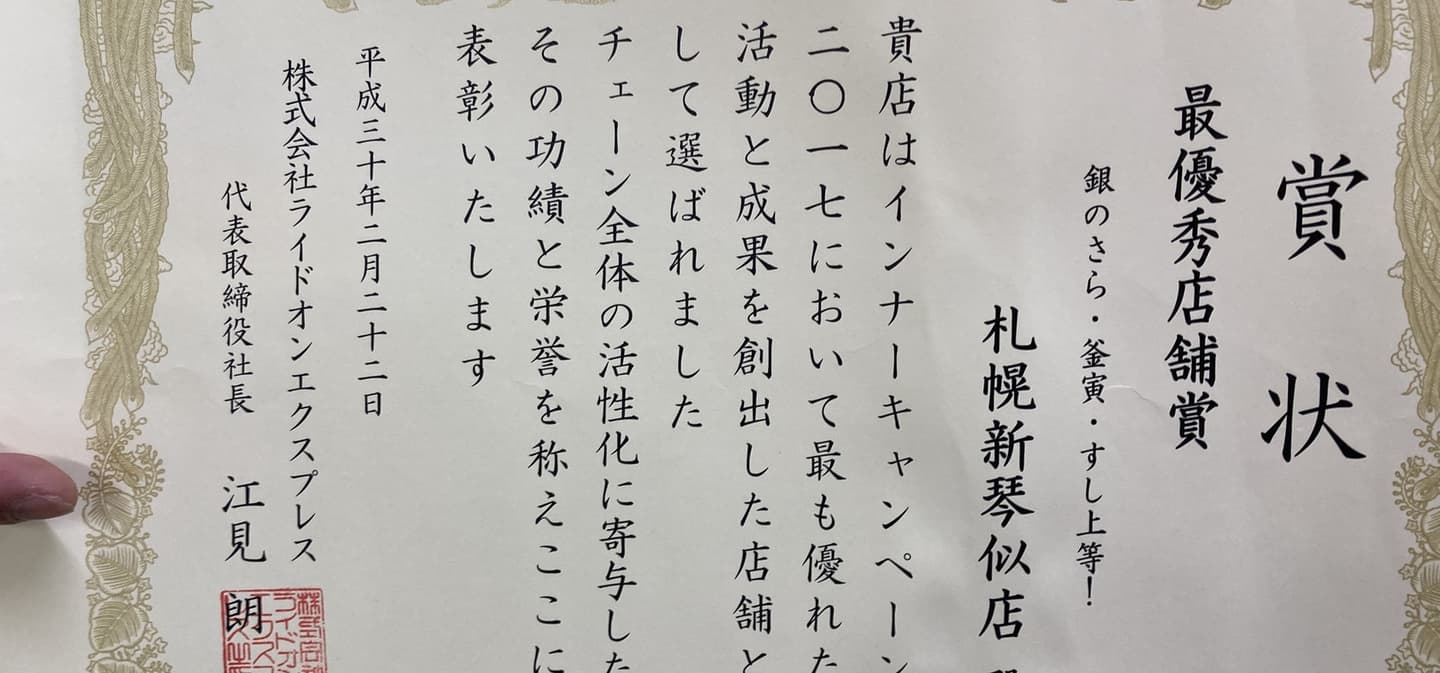 賞状
最優秀店舗賞
銀のさら・釜寅・すし上等！
札幌新琴似店
貴店はインナーキャンペーン
二〇一七において最も優れた
活動と成果を創出した店舗と
して選ばれました
チェーン全体の活性化に寄与した
その功績と栄誉を称えここに
表彰いたします
平成三十年二月二十二日
株式会社ライドオンエクスプレス
代表取締役社長 江見 朗